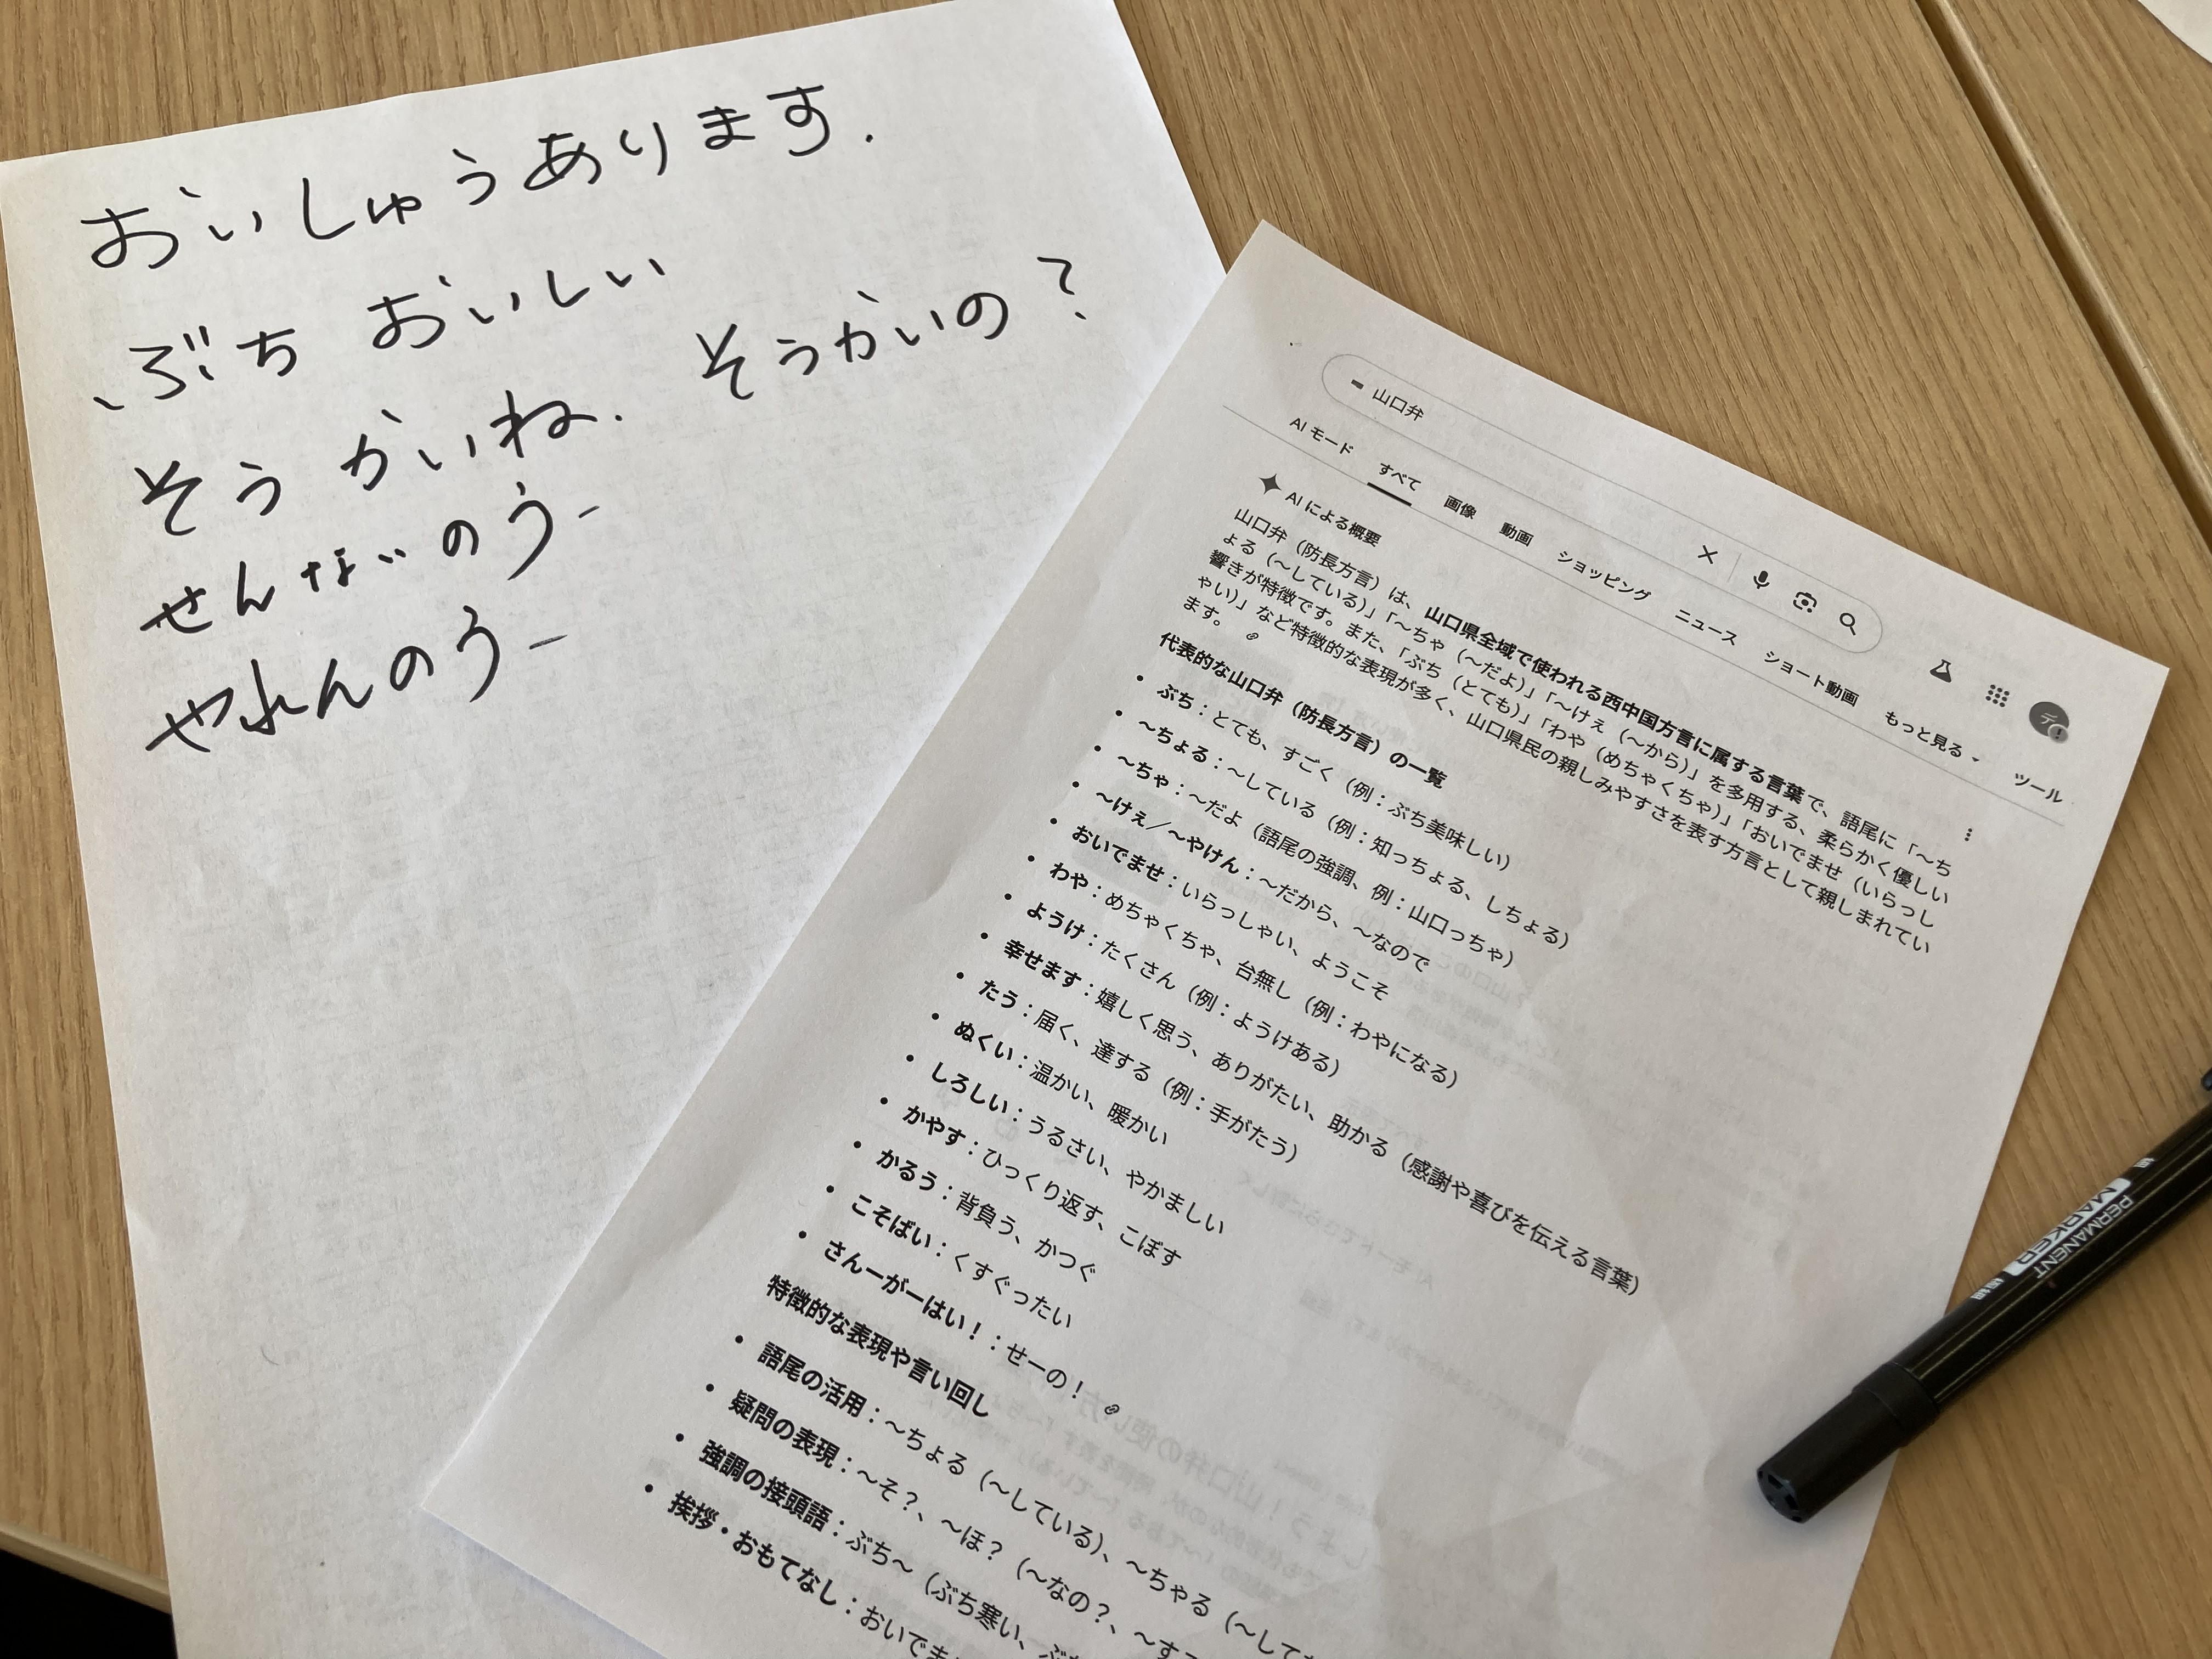 おいしゅうあります.
ぶち おいしい
そうかいね. そうかいの?
せんないのう-
やれんのう-
山口弁
AI モード すべて 画像 動画 ショッピング ニュース ショート動画 もっと見る ツール
デ
AI による概要
山口弁（防長方言）は、山口県全域で使われる西中国方言に属する言葉で、語尾に「〜ち
ょる（〜している）」「〜ちゃ（〜だよ）」「〜けぇ（〜から）」を多用する、柔らかく優しい
響きが特徴です。また、「ぶち（とても）」「わや（めちゃくちゃ）」「おいでませ（いらっし
ゃい）」など特徴的な表現が多く、山口県民の親しみやすさを表す方言として親しまれてい
ます。
代表的な山口弁（防長方言）の一覧
• ぶち：とても、すごく（例：ぶち美味しい）
• 〜ちょる：〜している（例：知っちょる、しちょる）
• 〜ちゃ：〜だよ（語尾の強調、例：山口っちゃ）
• 〜けぇ／〜やけん：〜だから、〜なので
• おいでませ：いらっしゃい、ようこそ
• わや：めちゃくちゃ、台無し（例：わやになる）
• ようけ：たくさん（例：ようけある）
• 幸せます：嬉しく思う、ありがたい、助かる（感謝や喜びを伝える言葉）
• たう：届く、達する（例：手がたう）
• ぬくい：温かい、暖かい
• しろしい：うるさい、やかましい
• かやす：ひっくり返す、こぼす
• かるう：背負う、かつぐ
• こそばい：くすぐったい
• さんーがーはい！：せーの！
特徴的な表現や言い回し
• 語尾の活用：〜ちょる（〜している）、〜ちゃる（〜して
• 疑問の表現：〜そ？、〜ほ？（〜なの？、〜す
• 強調の接頭語：ぶち〜（ぶち寒い、
• 挨拶・おもてなし：おいでま
PERMANENT
MARKER